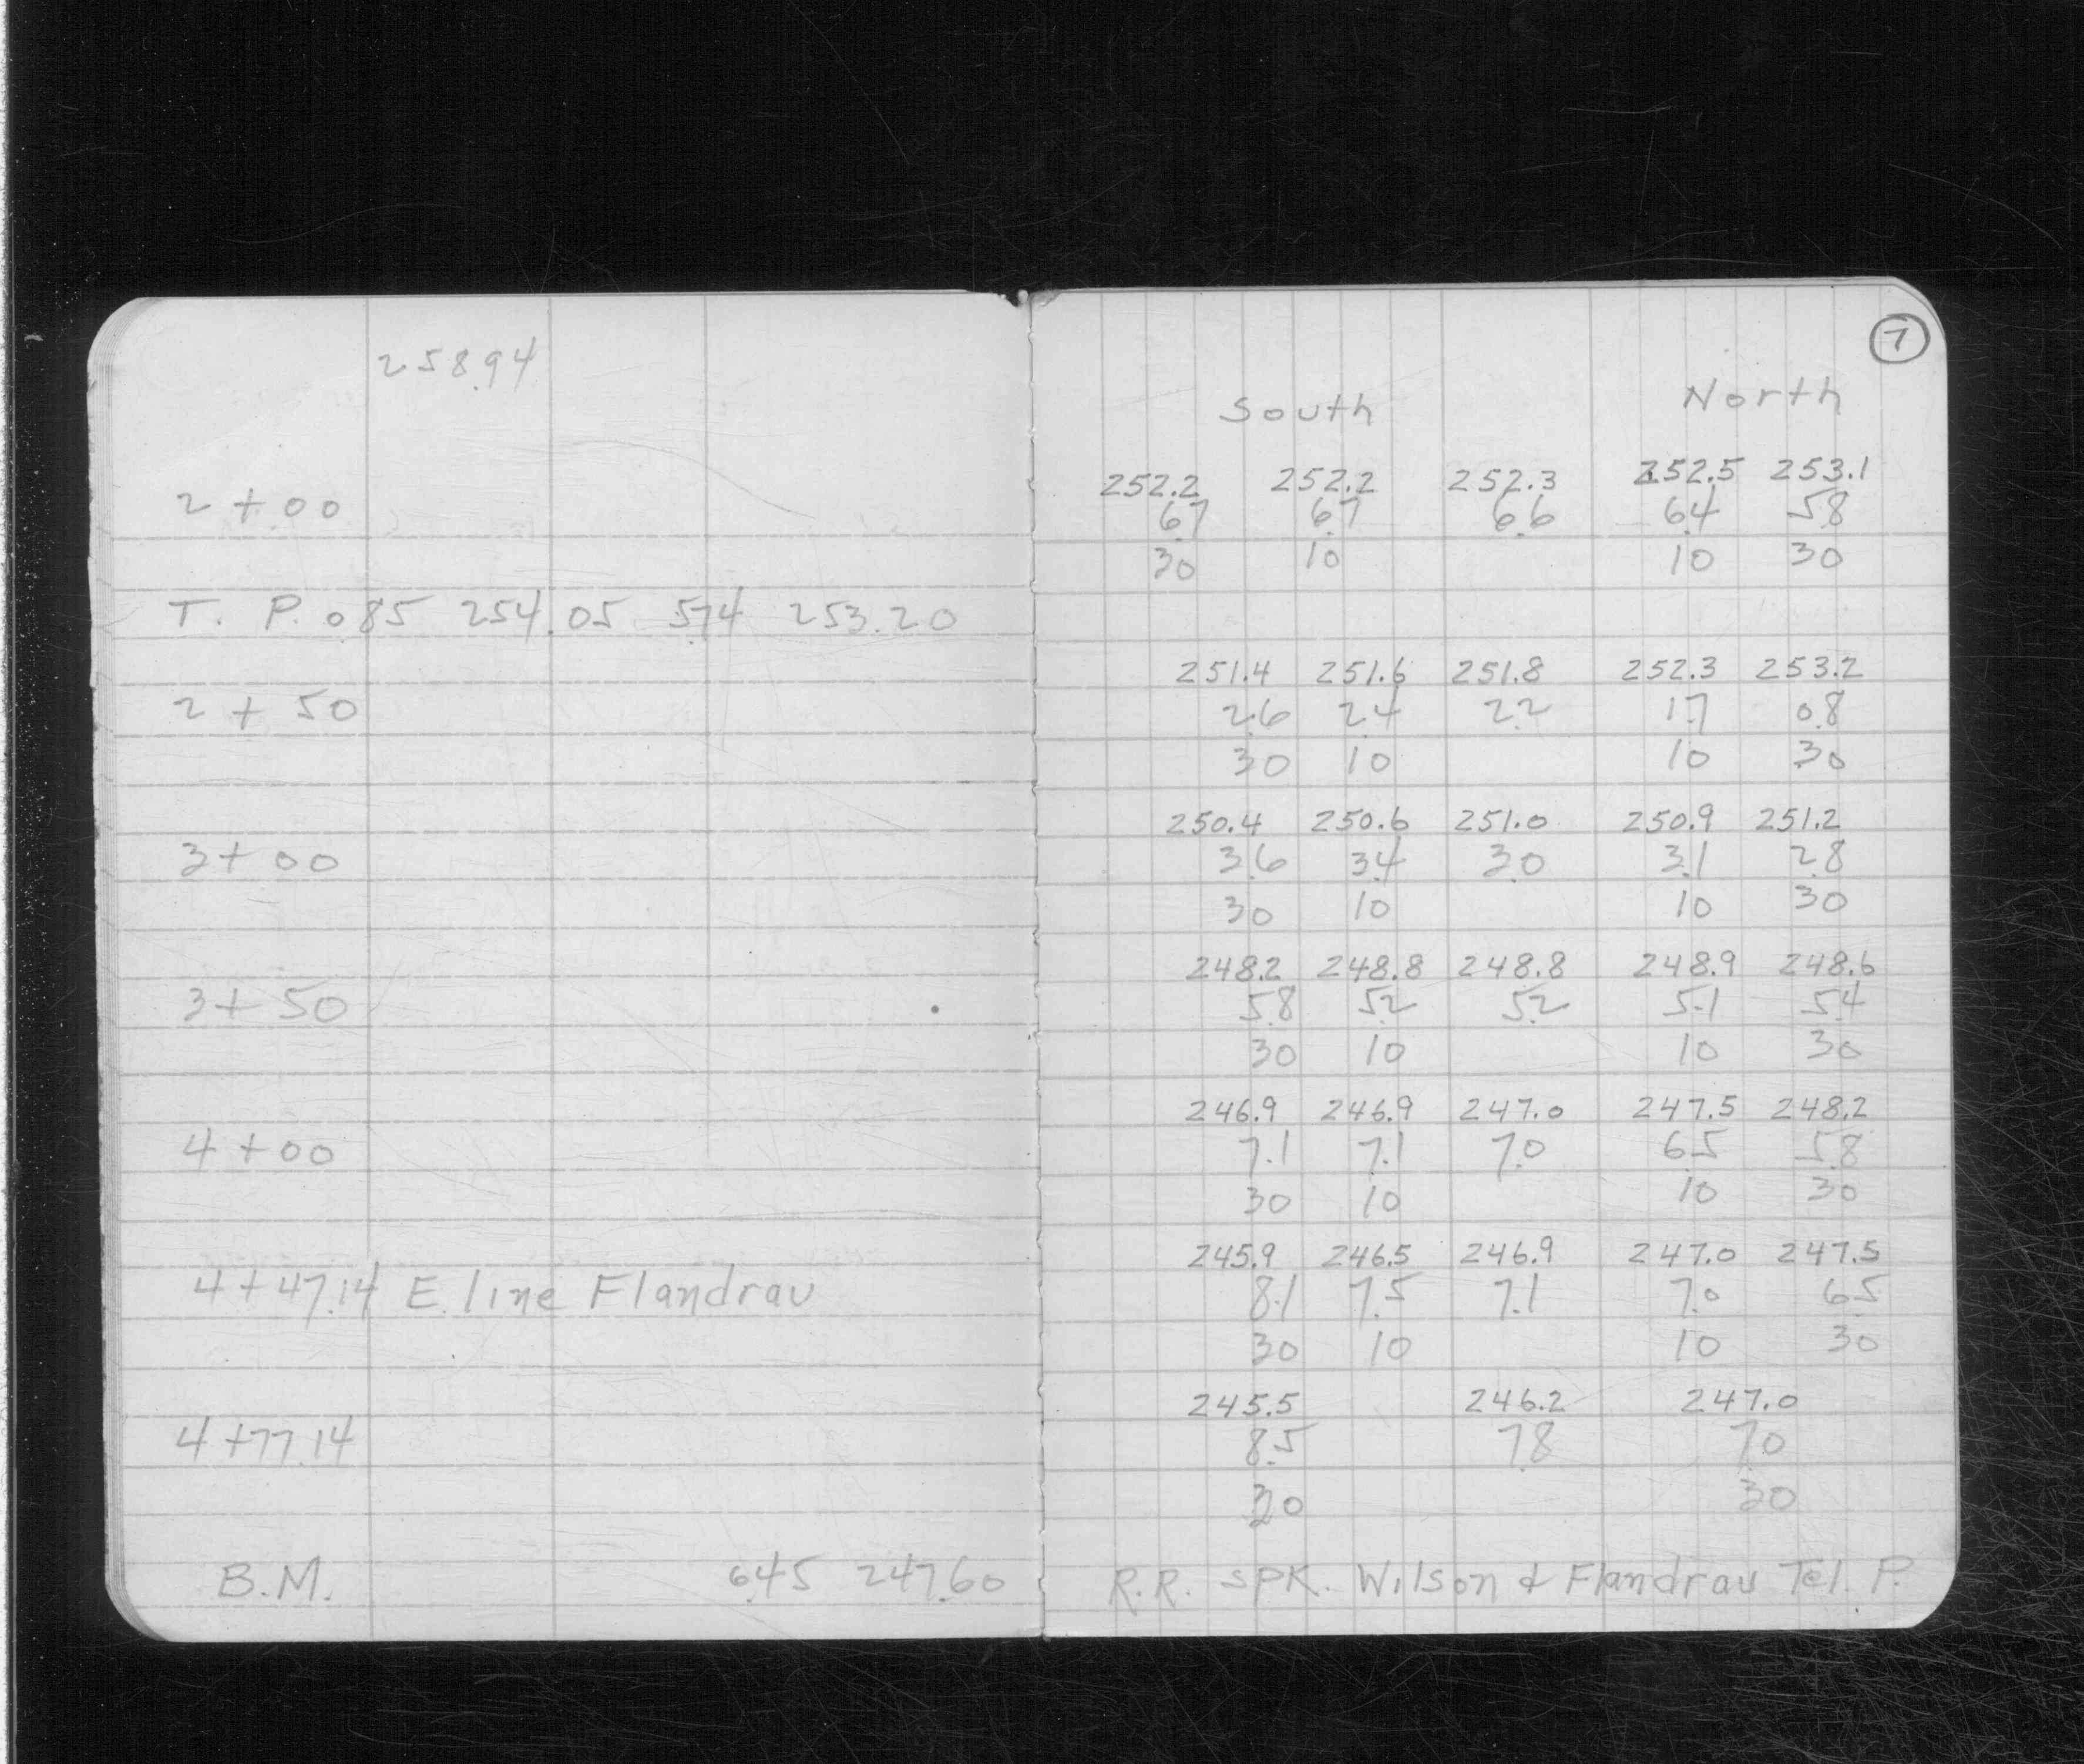 7
258.94
South North
252.2 252.2 252.3 252.5 253.1
2+00 6.7 6.7 6.6 6.4 5.8
30 10 10 30
T. P. 0.85 254.05 5.74 253.20
251.4 251.6 251.8 252.3 253.2
2+50 2.6 2.4 2.2 1.7 0.8
30 10 10 30
250.4 250.6 251.0 250.9 251.2
3+00 3.6 3.4 3.0 3.1 2.8
30 10 10 30
248.2 248.8 248.8 248.9 248.6
3+50 5.8 5.2 5.2 5.1 5.4
30 10 10 30
246.9 246.9 247.0 247.5 248.2
4+00 7.1 7.1 7.0 6.5 5.8
30 10 10 30
245.9 246.5 246.9 247.0 247.5
4+47.14 E. line Flandrau 8.1 7.5 7.1 7.0 6.5
30 10 10 30
245.5 246.2 247.0
4+77.14 8.5 7.8 7.0
30 30
B.M. 6.45 247.60 R.R. SPK. Wilson & Flandrau Tel. P.